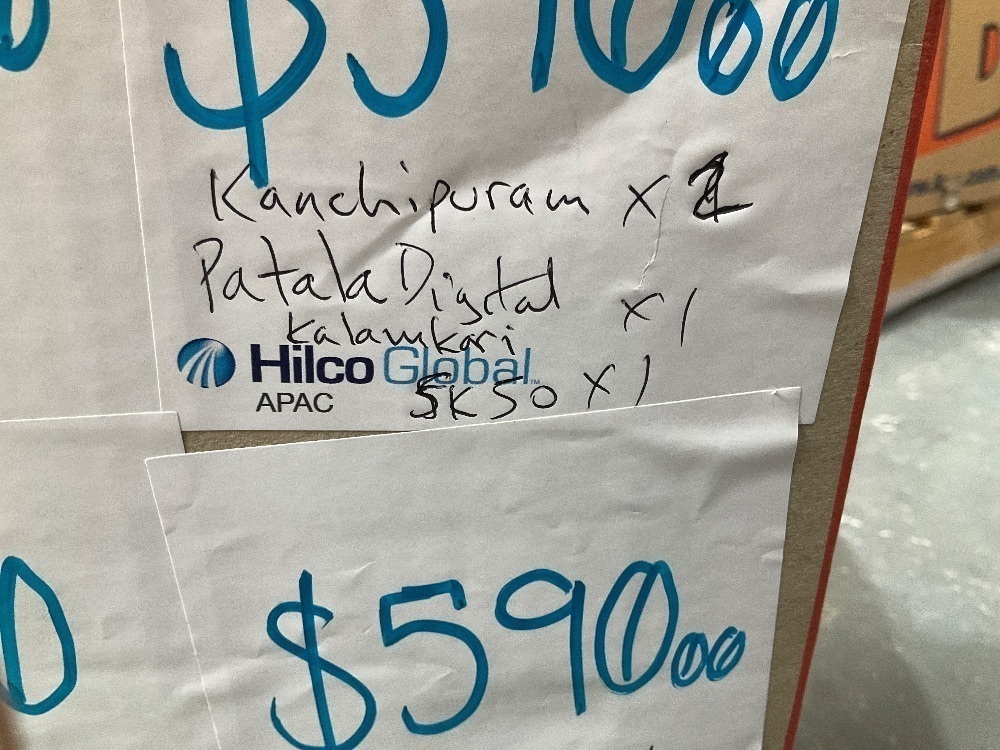 $590.00
Kanchipuram x 1
Patala Digital x 1
Kalamkari
Hilco Global™
APAC
SK50 x 1
$590.00